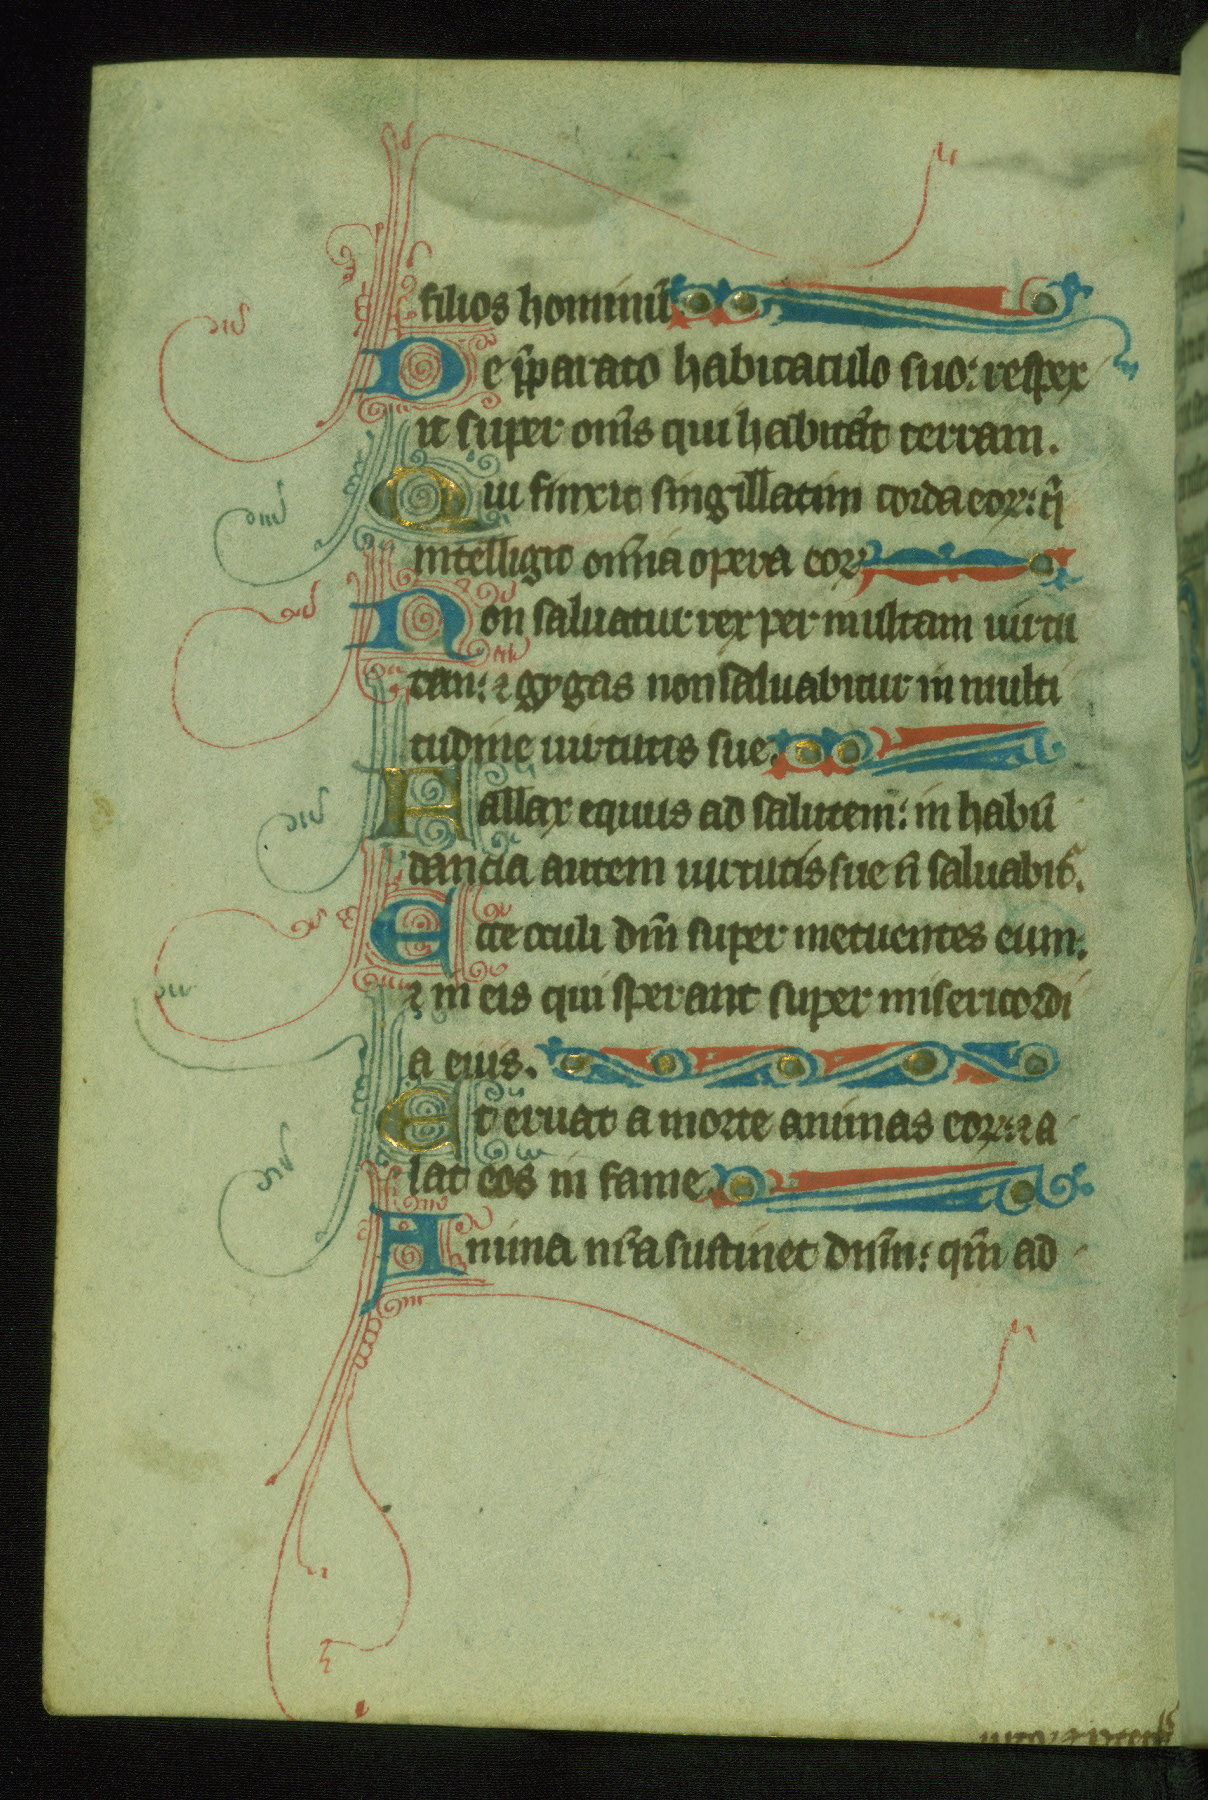 filios hominũ.
De p̃parato habitaculo suo: respex
it super om̃s qui habitãt terram.
Qui finxit singillatim corda eoꝝ: q̃
intelligit om̃ia opera eoꝝ
Non saluatur rex per multam uirtu
tem: ⁊ gygas non saluabitur in multi
tudine uirtutis sue.
Fallax equus ad salutem: in habũ
dancia autem uirtutis sue ñ saluabit̃.
Ecce oculi dñi super metuentes eum:
⁊ in eis qui sperant super misericordi
a eius.
Et eruat a morte animas eoꝝ: ⁊ a
lat eos in fame.
Anima nr̃a sustinet dnm̃: qm̃ ad